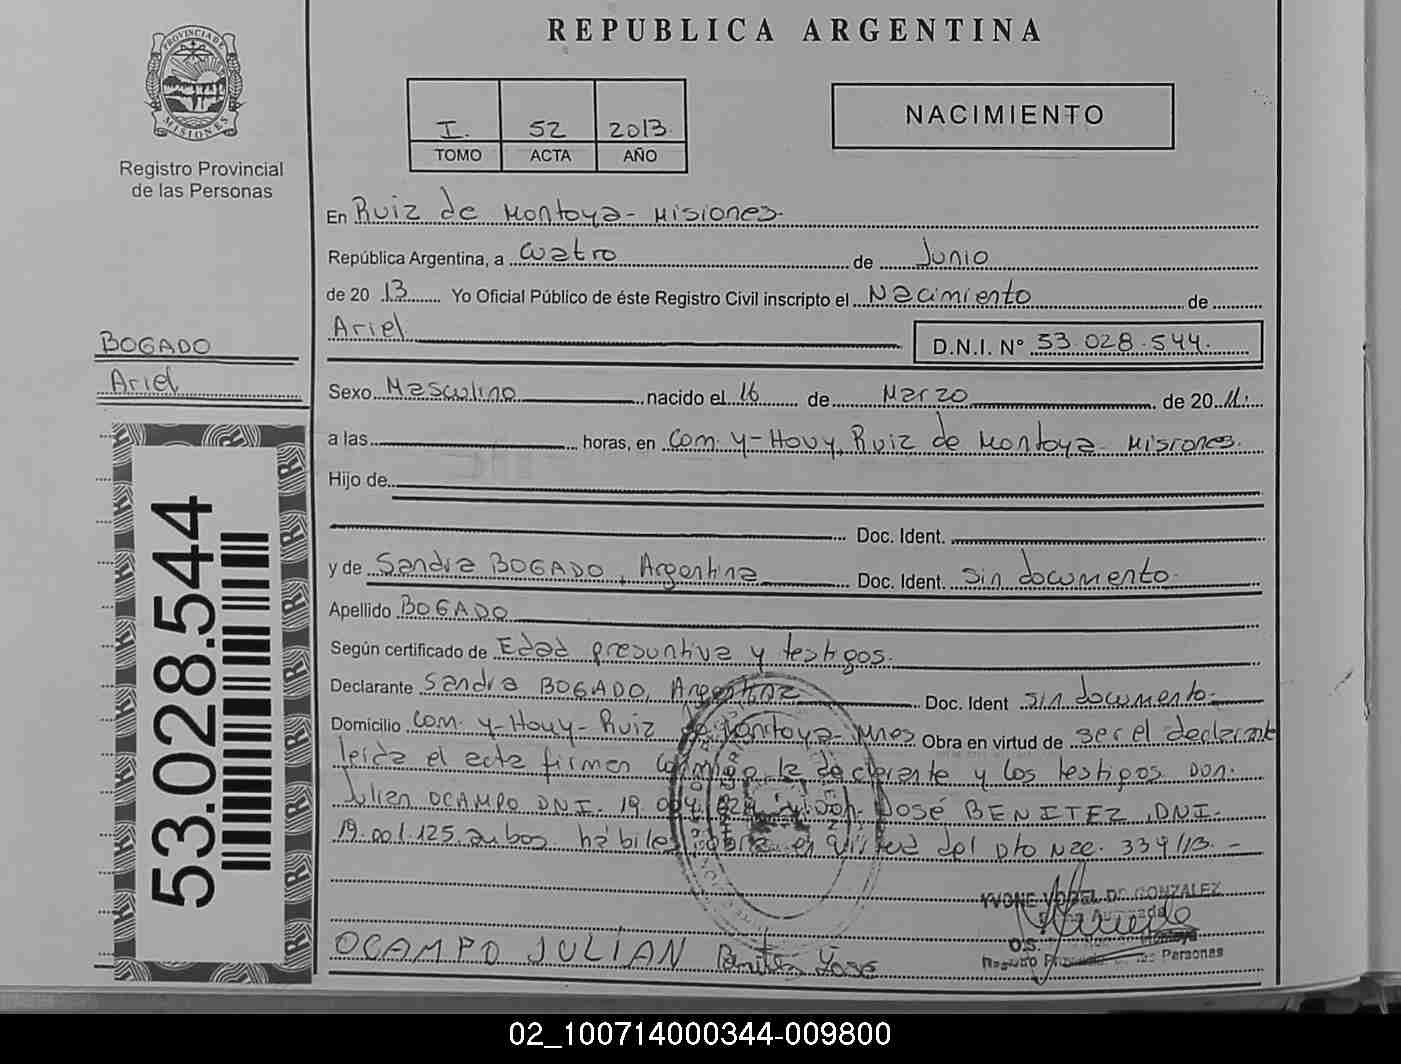 REPUBLICA ARGENTINA
PROVINCIA DE
MISIONES
Registro Provincial
de las Personas
I. 52 2013
TOMO ACTA AÑO
NACIMIENTO
En Ruiz de Montoya - Misiones.
República Argentina, a cuatro de Junio
de 20 13 Yo Oficial Público de éste Registro Civil inscripto el Nacimiento de
Ariel
D.N.I. N° 53.028.544.
BOGADO
Ariel
Sexo Masculino nacido el 16 de Marzo de 20 11.
a las horas, en Com. Y-Hovy, Ruiz de Montoya - Misiones.
Hijo de
Doc. Ident.
y de Sandra BOGADO, Argentina Doc. Ident. sin documento.
Apellido BOGADO
Según certificado de Edad presuntiva y testigos.
Declarante Sandra BOGADO, Argentina Doc. Ident sin documento.
Domicilio Com. Y-Hovy - Ruiz de Montoya - Mnes Obra en virtud de ser el declarant
leída el acta firman conmigo la declarante y los testigos Don.
Julian OCAMPO DNI. 19. José BENITEZ, DNI.
19.001.125. ambos hábiles, obra en virtud del Dto Nac. 339/13. -
YVONE VOGEL DE GONZALEZ
O.S.
Registro Provincial de las Personas
OCAMPO JULIAN Benitez José
53.028.544
02_100714000344-009800